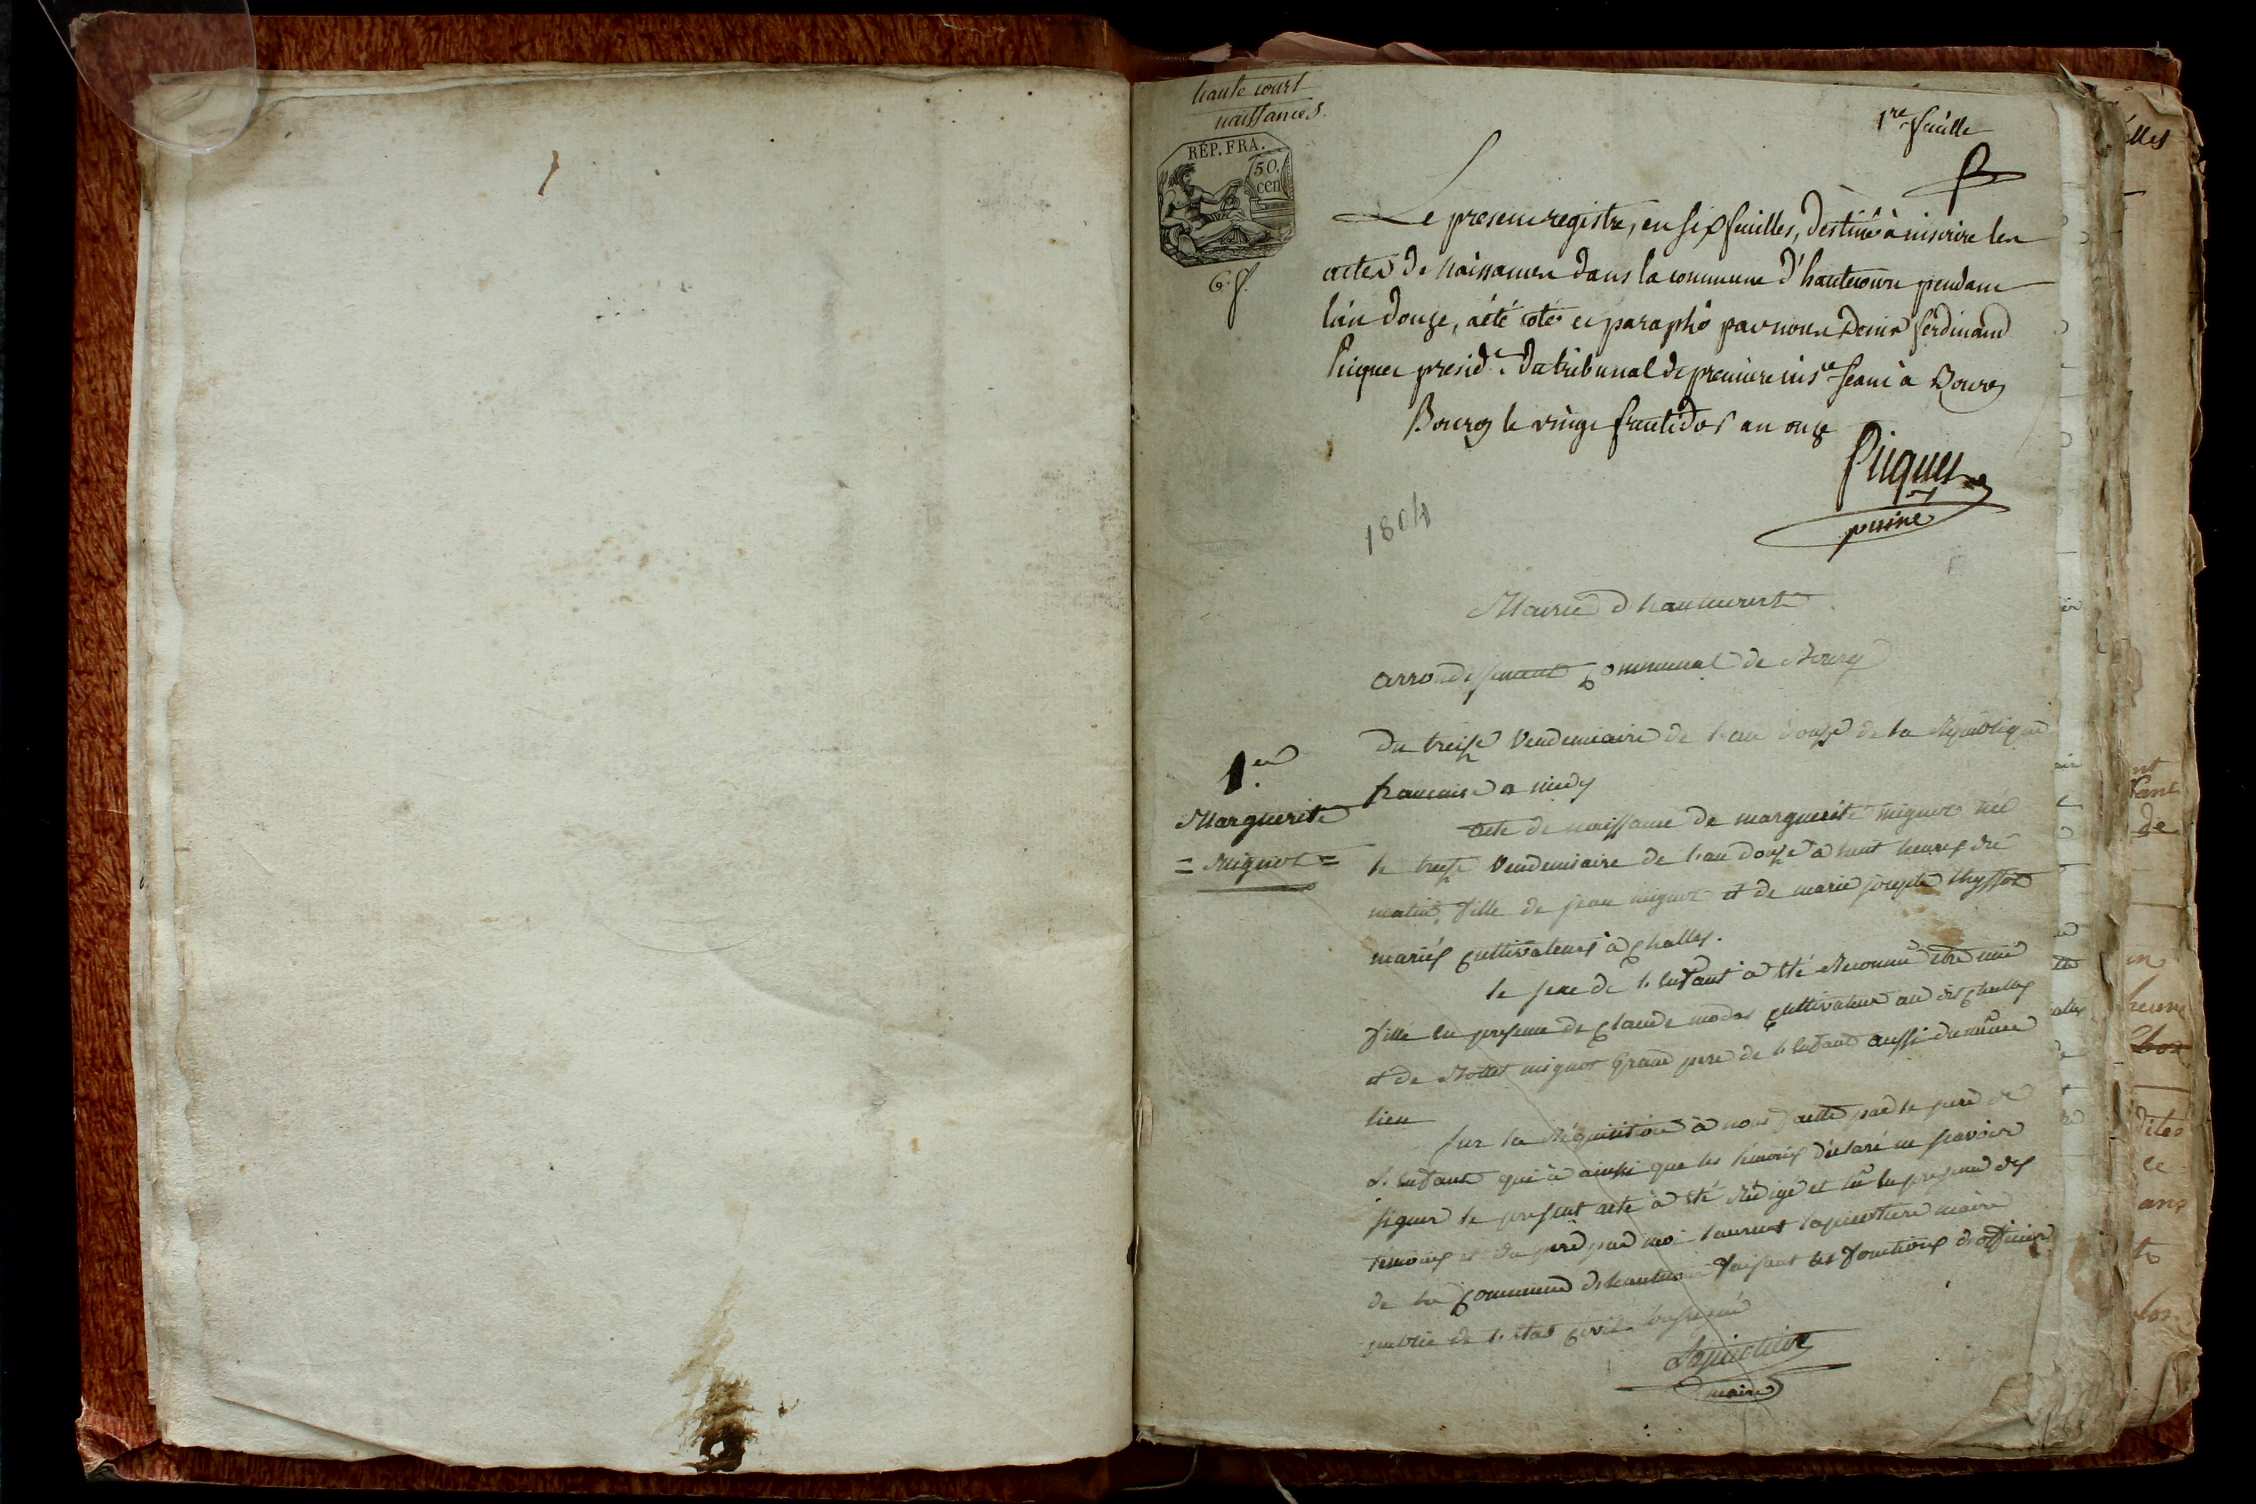 haute court
naissances.
1re feuille
RÉP. FRA.
50.
cen
6. f.
Le present registre, en six feuilles, destiné à inscrire les
actes de naissances dans la commune d'hautecour pendant
l'an douze, a été coté et paraphé par nous Denis ferdinand
Picquet presid.t du tribunal de premiere ins.ce seant à Bourg
Bourg le vingt fructidor an onze
Picquet
1804
Mairie d'hautecourt
arrondissement communal de Bourg
Du treize vendemiaire de l'an douze de la Republique
francaise a midy
1.er
Marguerite
= Mignot =
acte de naissance de marguerite mignot née
le treize vendemiaire de l'an douze a huit heures du
matin, fille de jean mignot et de marie josepte
mariés cultivateurs à Challes.
le sexe de l'enfant a été reconnu être une
fille en presence de Claude cultivateur au dit Challes
et de mignot grand pere de l'enfant aussi du même
lieu
sur la requisition à nous faitte par le pere de
l'enfant qui a ainsi que les témoins déclaré ne scavoir
signer le present acte a été rédigé et lû en presence des
témoins et du pere par moi laurent maire
de la commune de hautecour faisant les fonctions d'officier
public de l'etat civil soussigné
maire
elles
ant
de
heure
dites
ce